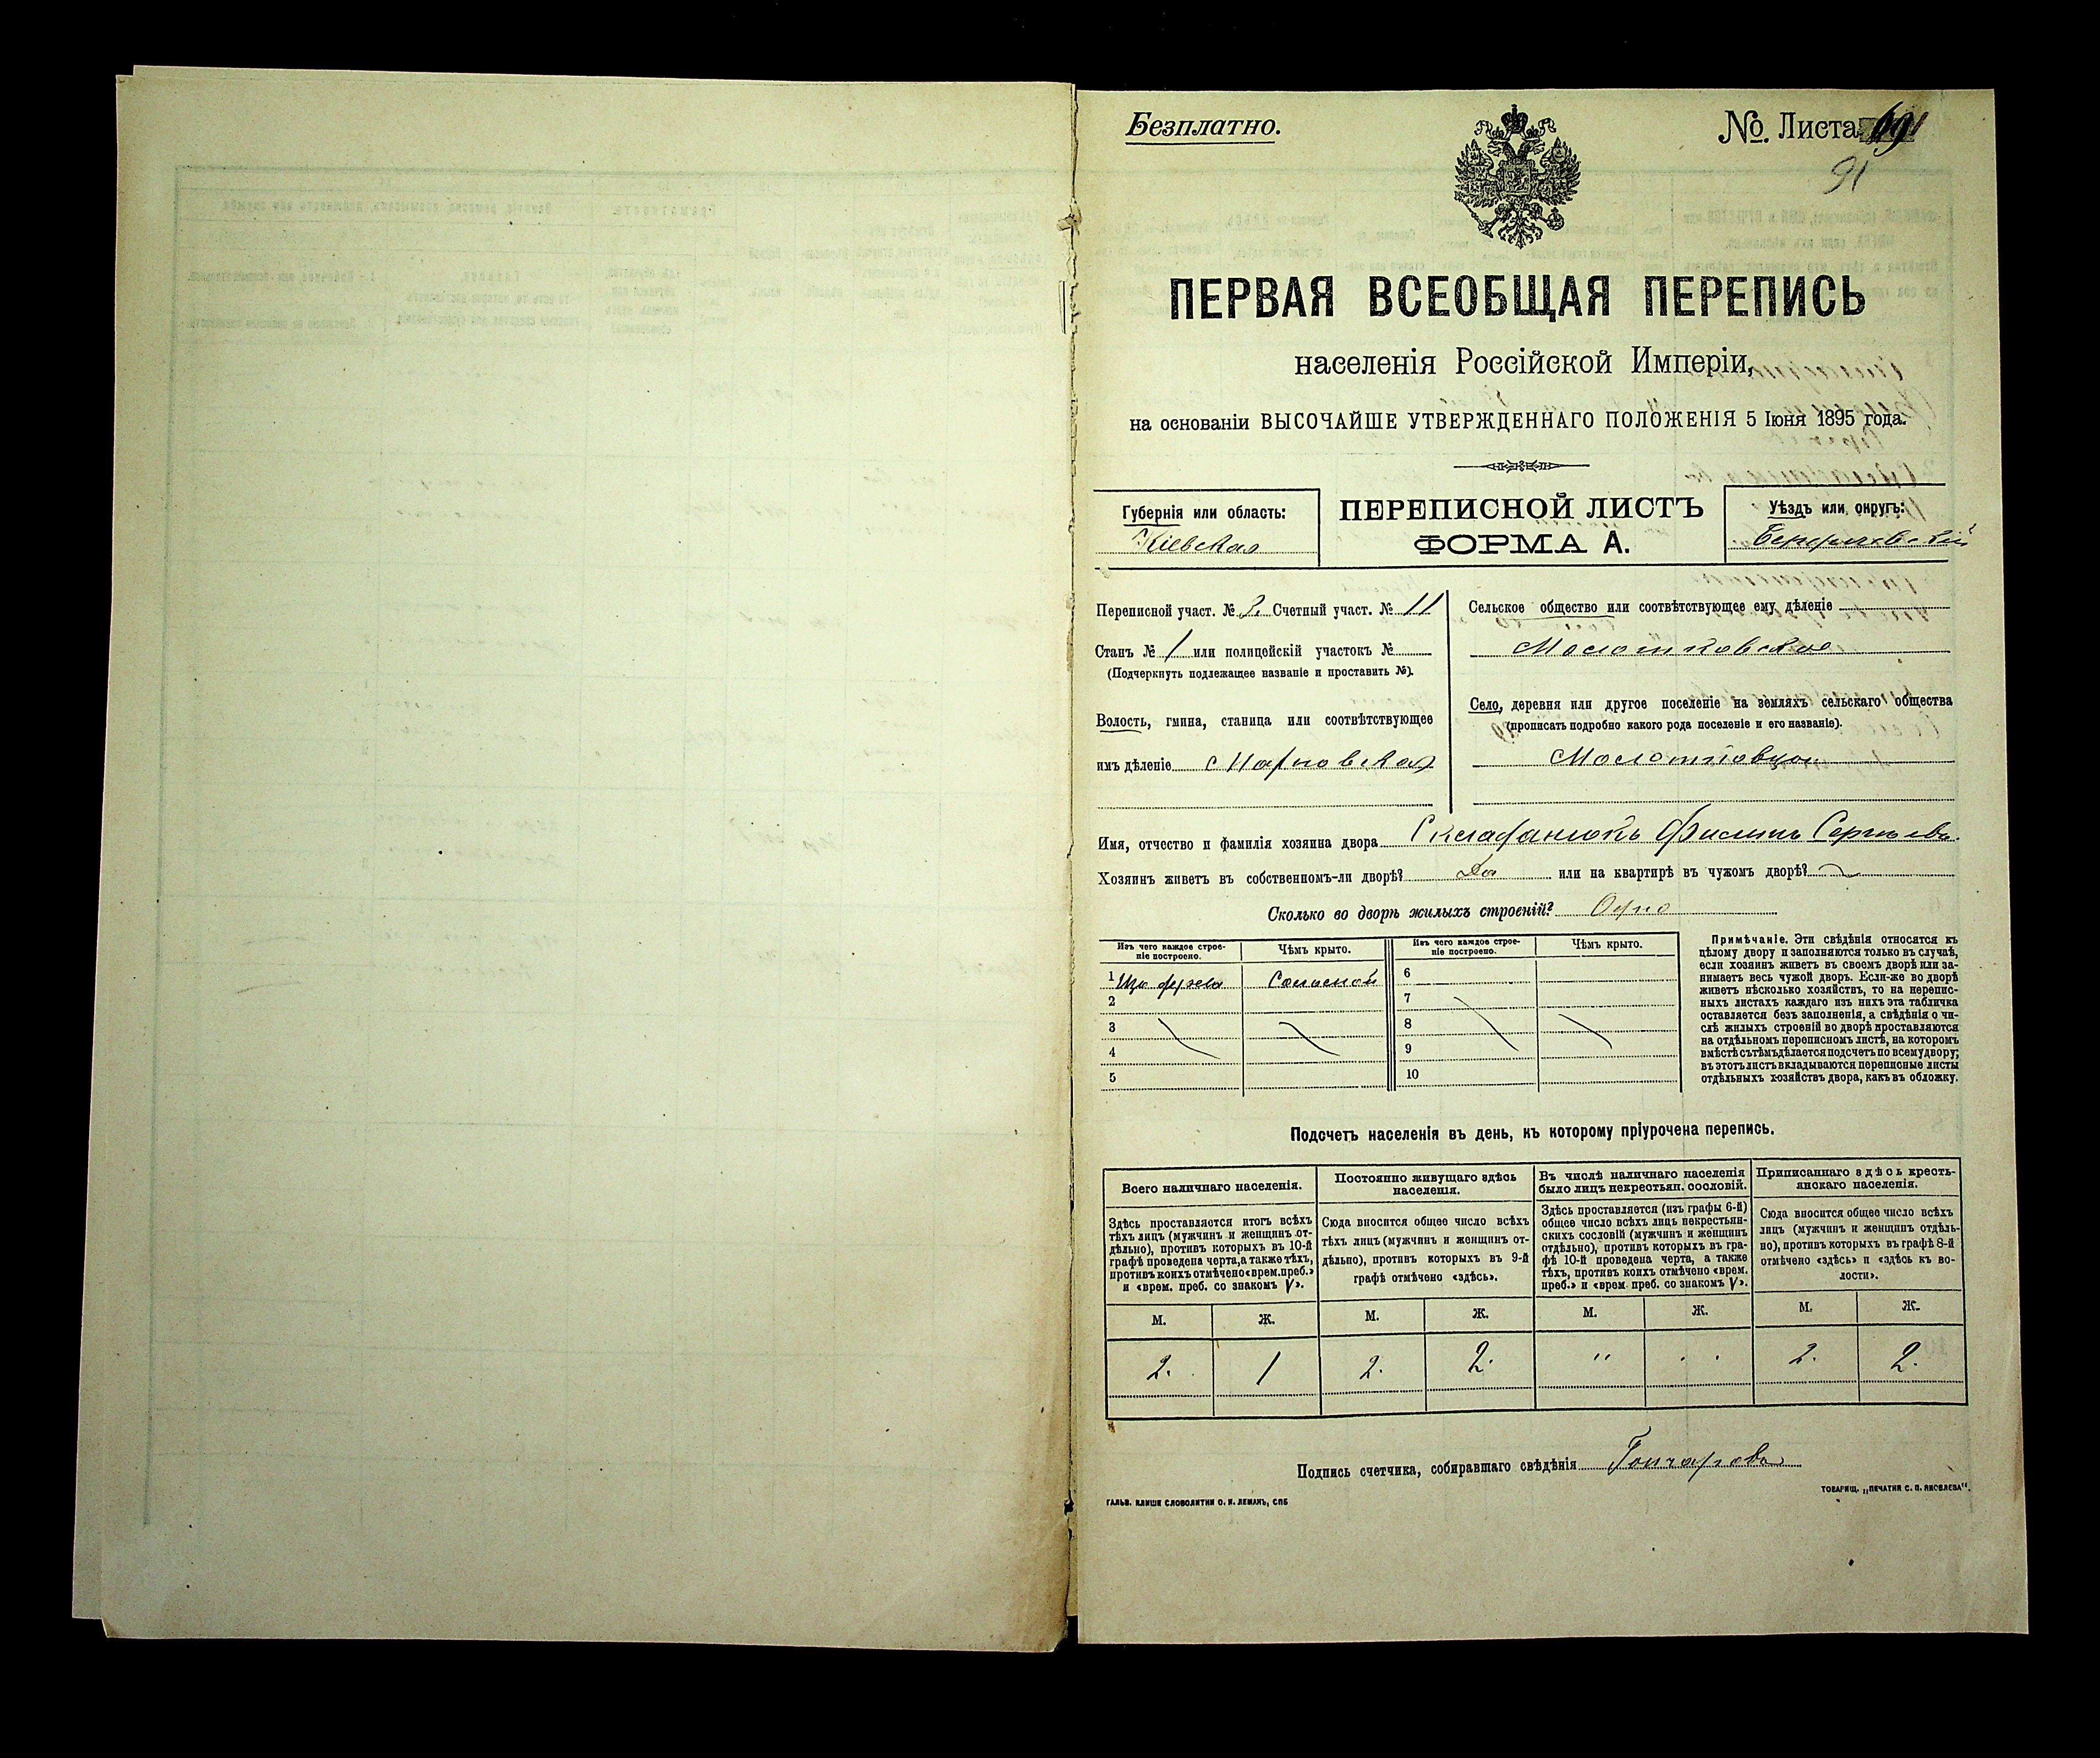 Безплатно.
№ Листа 69
91
ПЕРВАЯ ВСЕОБЩАЯ ПЕРЕПИСЬ
населенія Россійской Имперіи,
на основаніи ВЫСОЧАЙШЕ УТВЕРЖДЕННАГО ПОЛОЖЕНІЯ 5 Іюня 1895 года.
Губернія или область:
Кіевская
ПЕРЕПИСНОЙ ЛИСТЪ
ФОРМА А.
Уѣздъ или округъ:
Бердичевскій
Переписной участ. № 2. Счетный участ. № 11
Станъ № 1 или полицейскій участокъ №
(Подчеркнуть подлежащее названіе и проставить №).
Волость, гмина, станица или соотвѣтствующее
имъ дѣленіе
Сельское общество или соотвѣтствующее ему дѣленіе
Молотковское
Село, деревня или другое поселеніе на земляхъ сельскаго общества
(прописать подробно какого рода поселеніе и его названіе).
Имя, отчество и фамилія хозяина двора Склафанюкъ Филипъ Сергѣевъ.
Хозяинъ живетъ въ собственномъ-ли дворѣ? Да или на квартирѣ въ чужомъ дворѣ?
Сколько во дворѣ жилыхъ строеній? Одно
Изъ чего каждое строеніе построено.
Чѣмъ крыто.
Изъ чего каждое строеніе построено.
Чѣмъ крыто.
1 Изъ дерева Соломой 6
2 7
3 8
4 9
5 10
Примѣчаніе. Эти свѣдѣнія относятся къ
цѣлому двору и заполняются только въ случаѣ,
если хозяинъ живетъ въ своемъ дворѣ или за-
нимаетъ весь чужой дворъ. Если-же во дворѣ
живетъ нѣсколько хозяйствъ, то на перепис-
ныхъ листахъ каждаго изъ нихъ эта табличка
оставляется безъ заполненія, а свѣдѣнія о чи-
слѣ жилыхъ строеній во дворѣ проставляются
на отдѣльномъ переписномъ листѣ, на которомъ
вмѣстѣ съ тѣмъ дѣлается подсчетъ по всему двору;
въ этотъ листъ вкладываются переписные листы
отдѣльныхъ хозяйствъ двора, какъ въ обложку.
Подсчетъ населенія въ день, къ которому пріурочена перепись.
Всего наличнаго населенія.
Здѣсь проставляется итогъ всѣхъ
тѣхъ лицъ (мужчинъ и женщинъ от-
дѣльно), противъ которыхъ въ 10-й
графѣ проведена черта, а также тѣхъ,
противъ коихъ отмѣчено «врем. преб.»
и «врем. преб. со знакомъ V».
Постоянно живущаго здѣсь
населенія.
Сюда вносится общее число всѣхъ
тѣхъ лицъ (мужчинъ и женщинъ от-
дѣльно), противъ которыхъ въ 9-й
графѣ отмѣчено «здѣсь».
Въ числѣ наличнаго населенія
было лицъ некрестьян. сословій.
Здѣсь проставляется (изъ графы 6-й)
общее число всѣхъ лицъ некрестьян-
скихъ сословій (мужчинъ и женщинъ
отдѣльно), противъ которыхъ въ гра-
фѣ 10-й проведена черта, а также
тѣхъ, противъ коихъ отмѣчено «врем.
преб.» и «врем. преб. со знакомъ V».
Приписаннаго здѣсь кресть-
янскаго населенія.
Сюда вносится общее число всѣхъ
лицъ (мужчинъ и женщинъ отдѣль-
но), противъ которыхъ въ графѣ 8-й
отмѣчено «здѣсь» и «здѣсь къ во-
лости».
М. Ж. М. Ж. М. Ж. М. Ж.
2. 1 2. 2. " . . 2. 2.
Подпись счетчика, собиравшаго свѣдѣнія Гончаровъ
ГАЛЬВ. КЛИШЕ СЛОВОЛИТНИ О. И. ЛЕМАНЪ, СПБ
ТОВАРИЩ. „ПЕЧАТНЯ С. П. ЯКОВЛЕВА".